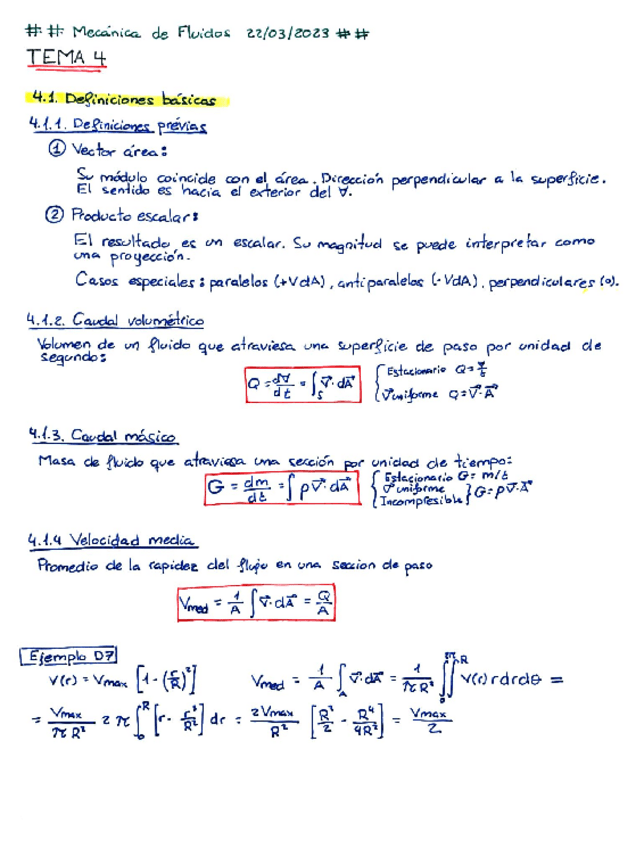 ## Mecánica de Fluidos 22/03/2023 ##
TEMA 4
4.1. Definiciones básicas
4.1.1. Definiciones prévias
① Vector área:
Su módulo coincide con el área. Dirección perpendicular a la superficie.
El sentido es hacia el exterior del ∀.
② Producto escalar:
El resultado es un escalar. Su magnitud se puede interpretar como
una proyección.
Casos especiales: paralelos (+VdA), antiparalelos (-VdA), perpendiculares (0).
4.1.2. Caudal volumétrico
Volumen de un fluido que atraviesa una superficie de paso por unidad de
segundo:
Q = d∀/dt = ∫_S V⃗·dA⃗ { Estacionario Q = ∀/t
V⃗ uniforme Q = V⃗·A⃗
4.1.3. Caudal másico
Masa de fluido que atraviesa una sección por unidad de tiempo:
G = dm/dt = ∫ρV⃗·dA⃗ { Estacionario G = m/t
V⃗ uniforme
Incompresible } G = ρV⃗·A⃗
4.1.4 Velocidad media
Promedio de la rapidez del flujo en una seccion de paso
V_med = 1/A ∫V⃗·dA⃗ = Q/A
Ejemplo D7
V(r) = V_max [1 - (r/R)²] V_med = 1/A ∫_A V⃗·dA⃗ = 1/(πR²) ∫∫_0^{2π, R} V(r) r dr dθ =
= V_max/(πR²) 2π ∫_0^R [r - r³/R²] dr = 2V_max/R² [R²/2 - R⁴/4R²] = V_max/2